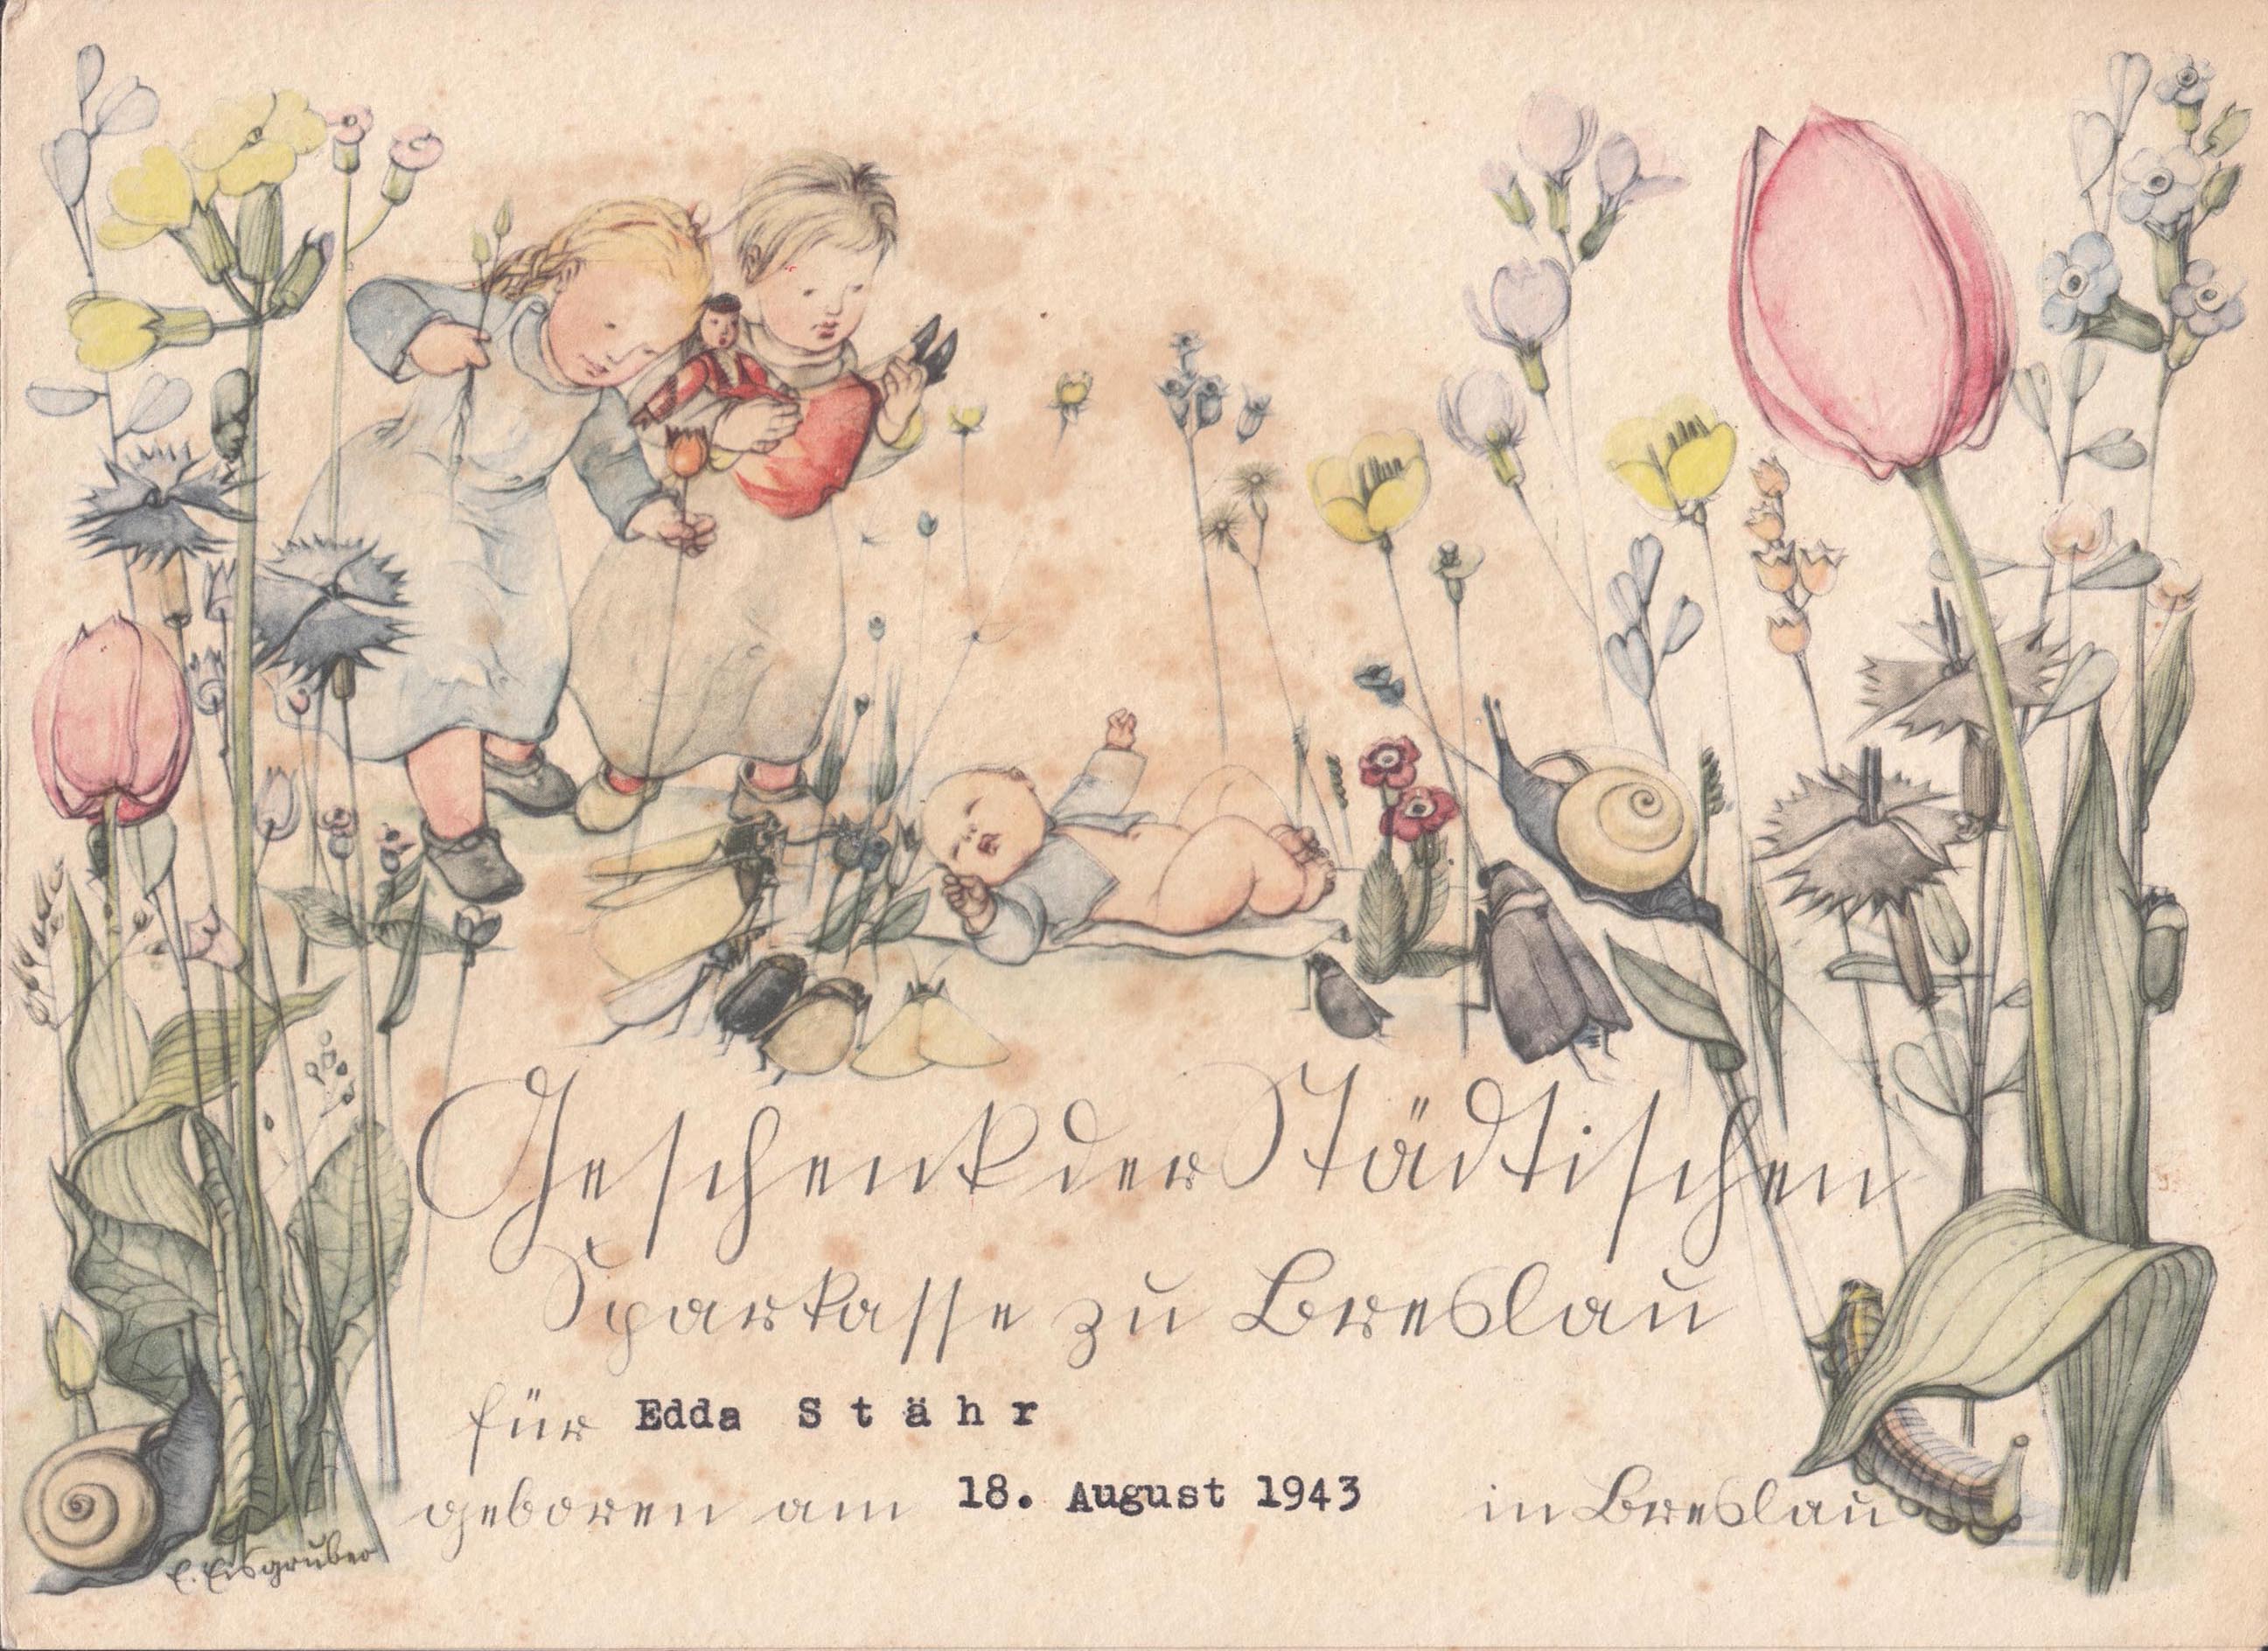 Geschenk der Städtischen
Sparkasse zu Breslau
für Edda Stähr
geboren am 18. August 1943 in Breslau
E. Eisgruber